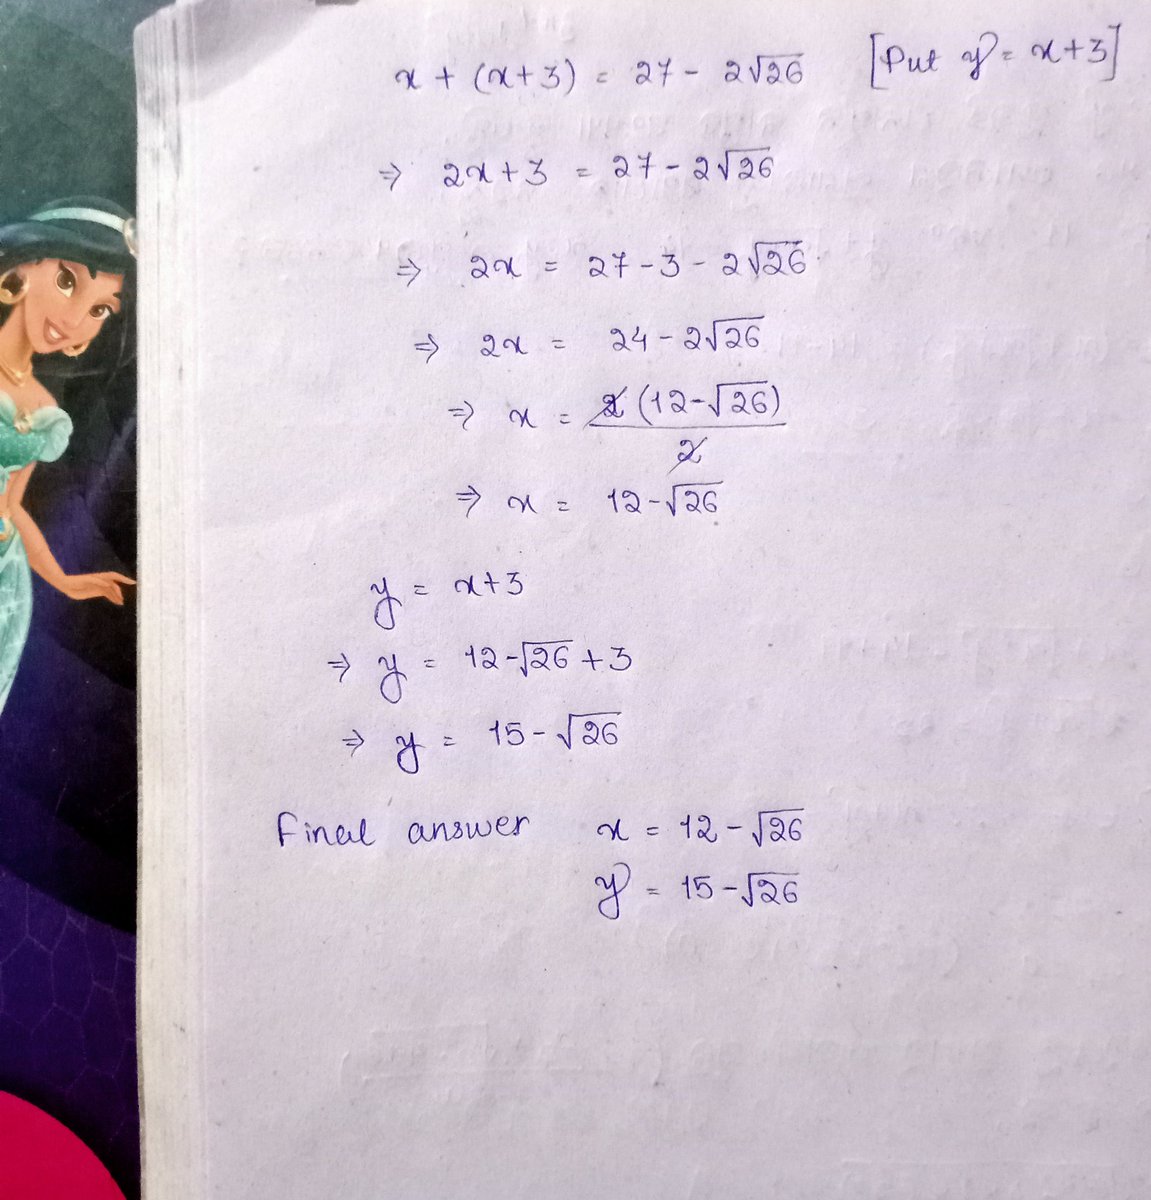 x + (x+3) = 27 - 2√26 [Put y = x+3]
⇒ 2x+3 = 27 - 2√26
⇒ 2x = 27 - 3 - 2√26
⇒ 2x = 24 - 2√26
⇒ x = 2(12-√26)
2
⇒ x = 12-√26
y = x+3
⇒ y = 12-√26 + 3
⇒ y = 15-√26
Final answer x = 12-√26
y = 15-√26